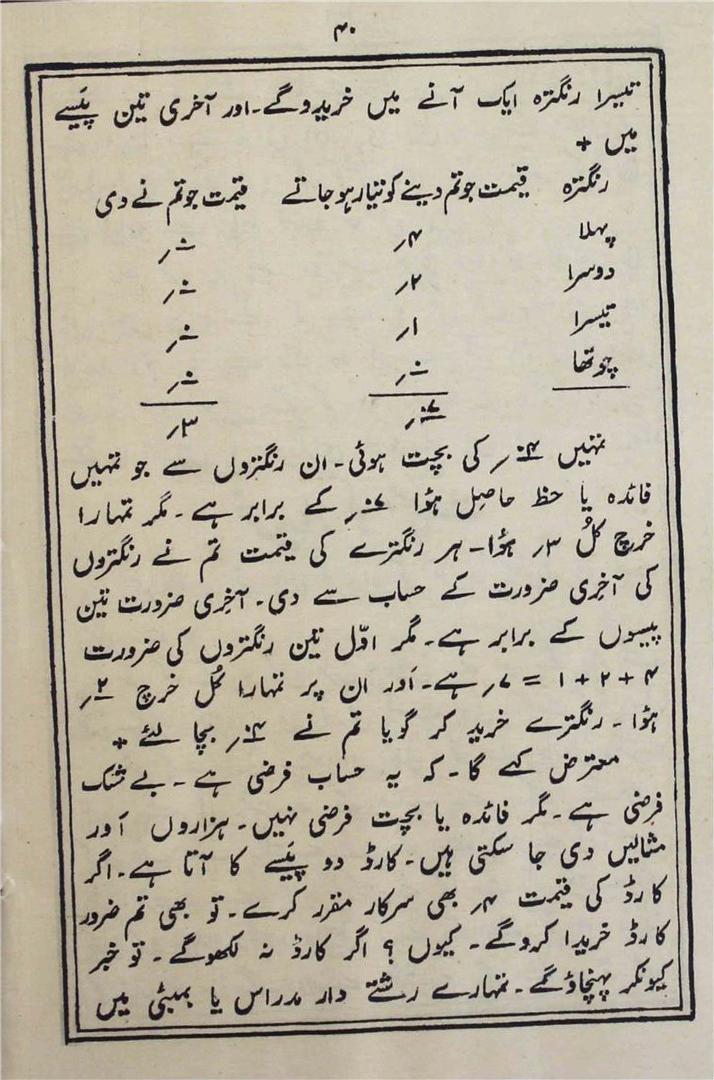 ۴۰
تیسرا رنگترہ ایک آنے میں خریدوگے۔ اور آخری تین پَیسے
میں +
رنگترہ قیمت جو تم دینے کو تیار ہو جاتے قیمت جو تم نے دی
پہلا ۴؍
دوسرا ۲؍
تیسرا ۱؍
چوتھا
۳؍
تمہیں کی بچت ہوئی۔ ان رنگتروں سے جو تمہیں
فائدہ یا حظ حاصِل ہؤا کے برابر ہے۔ مگر تمہارا
خرچ کلُ ۳؍ ہؤا۔ ہر رنگترے کی قیمت تم نے رنگتروں
کی آخری ضرورت کے حساب سے دی۔ آخِری ضرورت تین
پیسوں کے برابر ہے۔ مگر اوّل تین رنگتروں کی ضرورت
۴ + ۲ + ۱ = ۷؍ ہے۔ اَور ان پر تمہارا کُل خرچ
ہؤا۔ رنگترے خرید کر گویا تم نے بچا لئے +
معترض کہے گا۔ کہ یہ حساب فرضی ہے۔ بے شک
فرضی ہے۔ مگر فائدہ یا بچت فرضی نہیں۔ ہزاروں اَور
مثالیں دی جا سکتی ہیں۔ کارڈ دو پَیسے کا آتا ہے۔ اگر
کارڈ کی قیمت ۴؍ بھی سرکار مقرر کرے۔ تو بھی تم ضرور
کارڈ خریدا کروگے۔ کیوں ؟ اگر کارڈ نہ لکھوگے۔ تو خبر
کیونکر پہنچاؤگے۔ تمہارے رشتے دار مدراس یا بمبئی میں